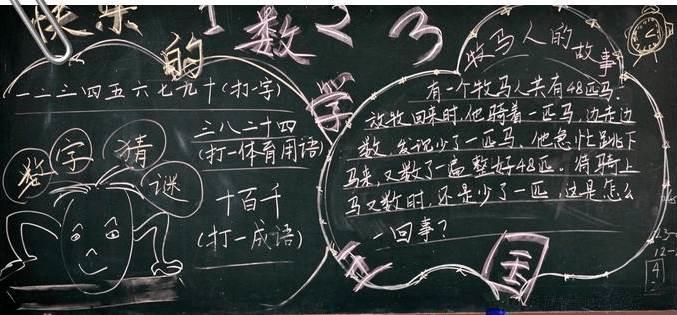 快乐的 1 数 2 3
学
王
国
一二三四五六七九十(打一字)
数字猜谜
三八二十四
(打一体育用语)
十百千
(打一成语)
牧马人的故事
有一个牧马人共有48匹马.
放牧回来时,他骑着一匹马,边走边
数,发现少了一匹马,他急忙跳下
马来,又数了一遍,整好48匹。待骑上
马又数时,还是少了一匹,这是怎么
一回事?
4